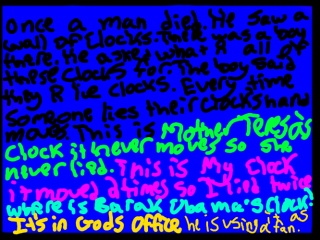 once a man died. He saw a
wall of clocks. There was a boy
there. He asked what R all of
these clocks for The boy said
they R lie clocks. Every time
someone lies their clocks hand
moves. This is Mother Teresa's
Clock it never moves so she
never lied. This is My Clock
it moved 2 times so I lied twice
where is Barak Obama's Clock?
It's in Gods Office he is using it as
a fan.